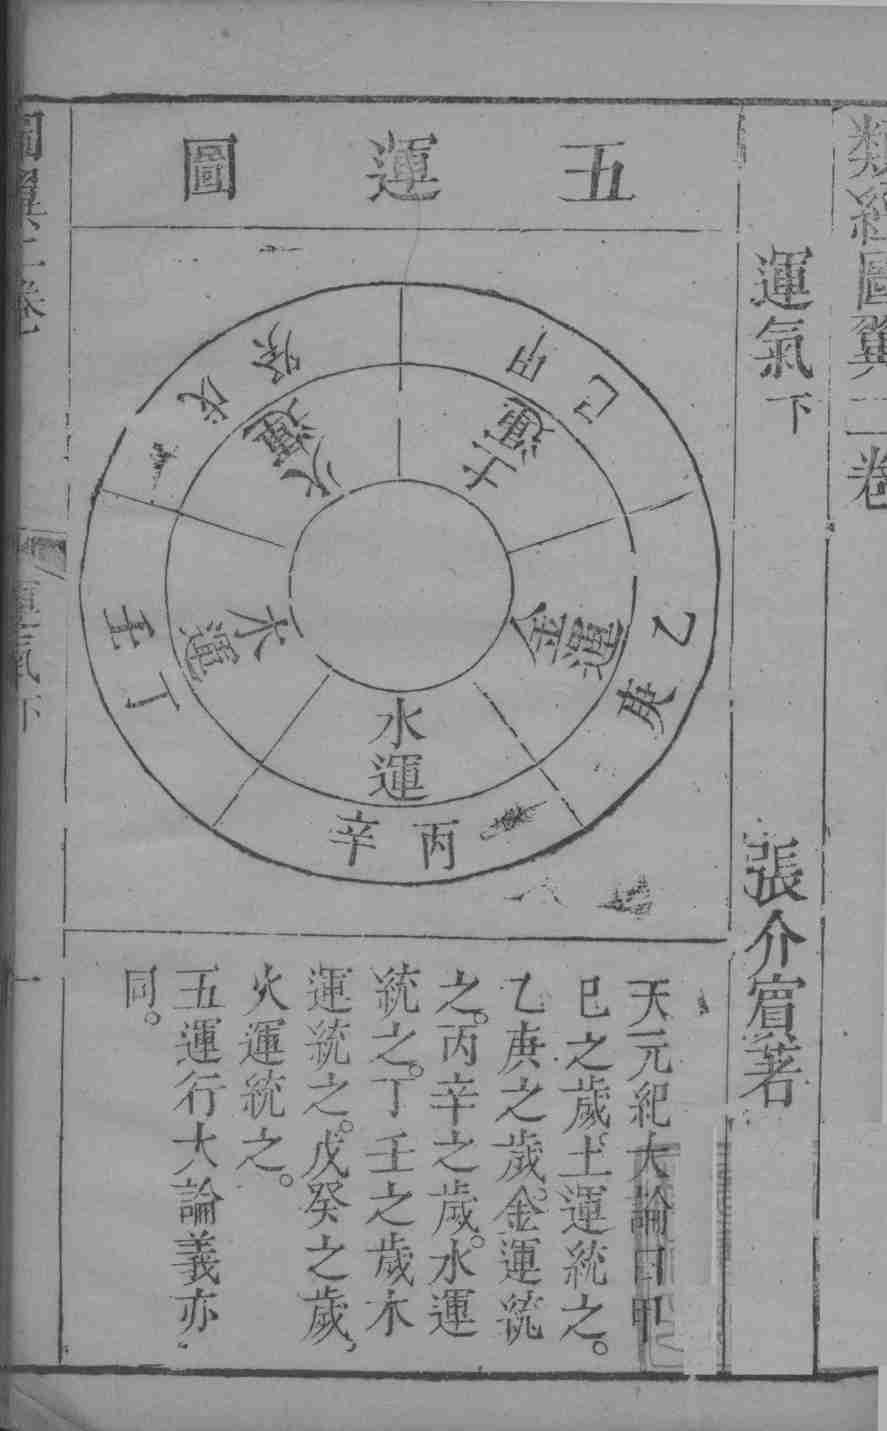 類經圖翼二卷
運氣下
張介賔著
五運圖
甲己
土運
乙庚
金運
丙辛
水運
丁壬
木運
戊癸
火運
天元紀大論曰甲
巳之歲土運統之。
乙庚之歲金運統
之。丙辛之歲。水運
統之。丁壬之歲木
運統之。戊癸之歲、
火運統之。
五運行大論義亦
同。
圖翼二卷
運氣下
一